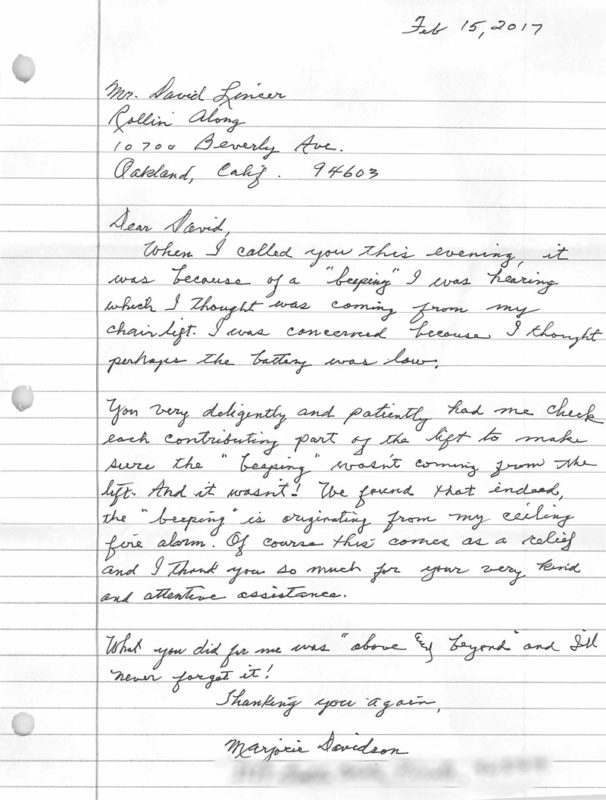 Feb 15, 2017
Mr. David Lincer
Rollin' Along
10700 Beverly Ave.
Oakland, Calif. 94603
Dear David,
When I called you this evening, it
was because of a "beeping" I was hearing
which I thought was coming from my
chair lift. I was concerned because I thought
perhaps the battery was low.
You very deligently and patiently had me check
each contributing part of the lift to make
sure the "beeping" wasn't coming from the
lift. And it wasn't! We found that indeed,
the "beeping" is originating from my ceiling
fire alarm. Of course this comes as a relief
and I thank you so much for your very kind
and attentive assistance.
What you did for me was "above & beyond" and I'll
never forget it!
Thanking you again,
Marjorie Davidson